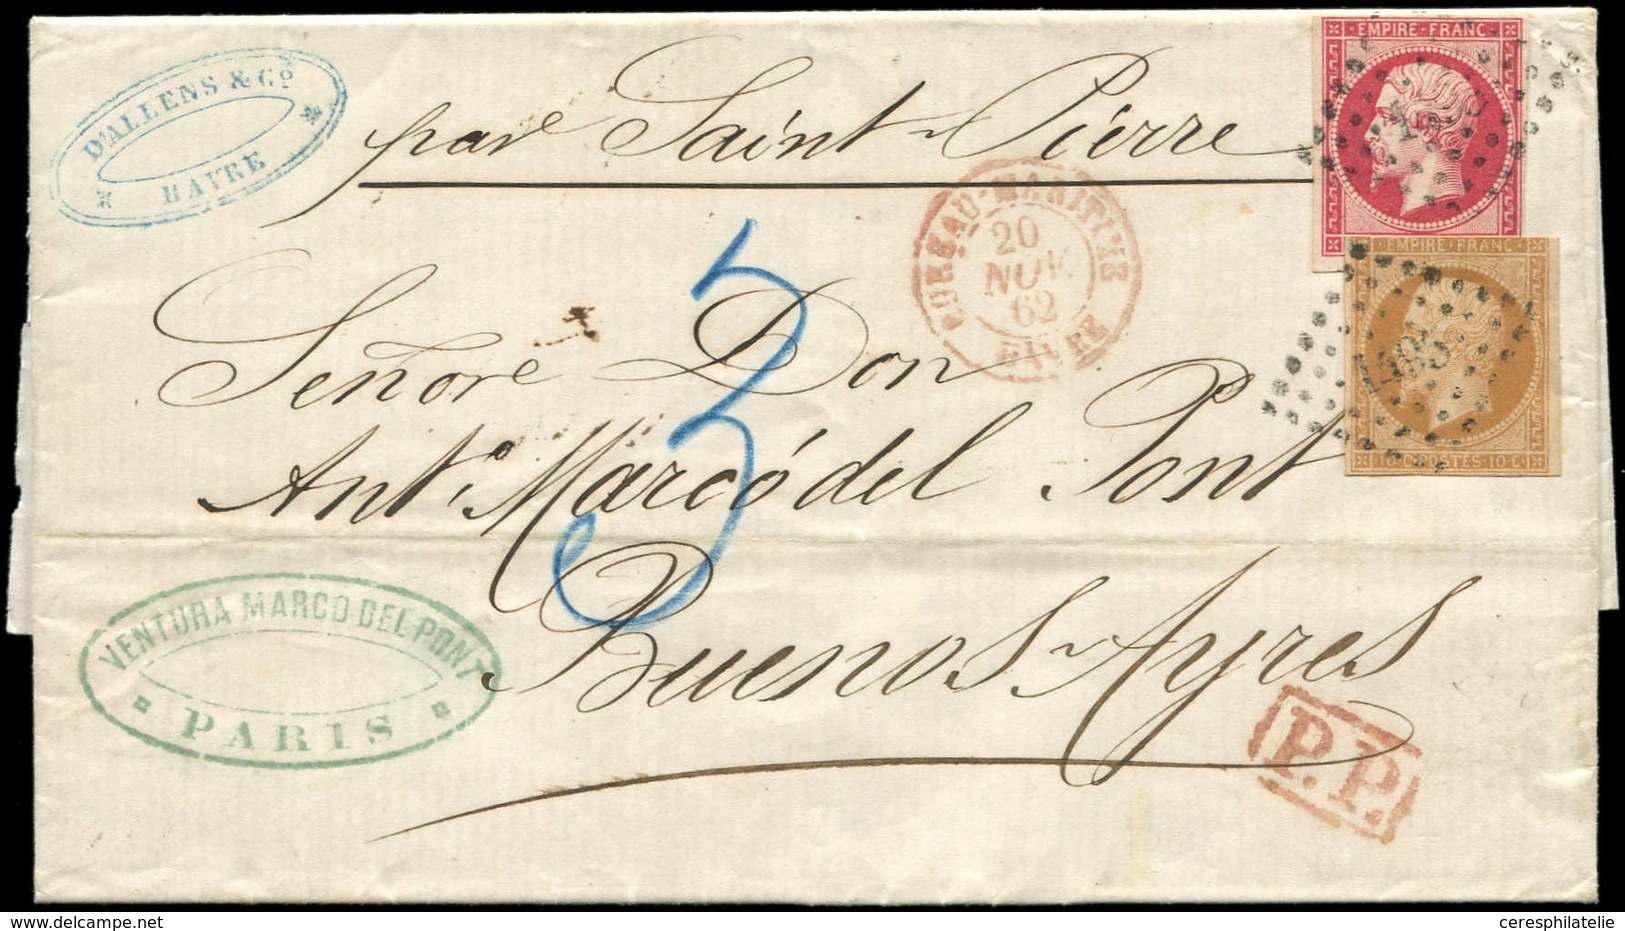 D'ALLENS & Cº
HAVRE
par Saint-Pierre
EMPIRE·FRANC
BUREAU·MARITIME
20
NOV
62
HAVRE
EMPIRE·FRANC
1495
10 C·POSTES·10 C
3
Señore Don
Antº Marcó del Pont
Buenos-Ayres
VENTURA MARCO DEL PONT
PARIS
P.P.
www.delcampe.net
ceresphilatelie